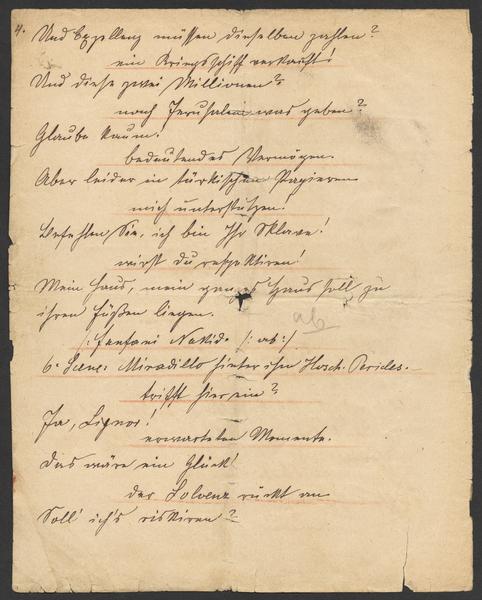 4.
Und Exzellenz müssen dieselben zahlen?
ein Kriegsschiff verkauft!
Und diese zwei Millionen?
nach Jerusalem was geben?
Glaube kaum.
bedeutendes Vermögen.
Aber leider in türkischen Papieren
mich unterstützen!
Befehlen Sie, ich bin Ihr Sklave!
wirst du respektiren!
Mein Haus, mein ganzes Haus soll zu
ihren Füßen liegen.
ab
/: :ab:/
6. Scene: Miradillo hinter ihm Hosch. Pericles.
trifft hier ein?
Ja, Signor!
erwarteten Momente.
Das wäre ein Glück!
der rückt an
Soll ich's riskiren?